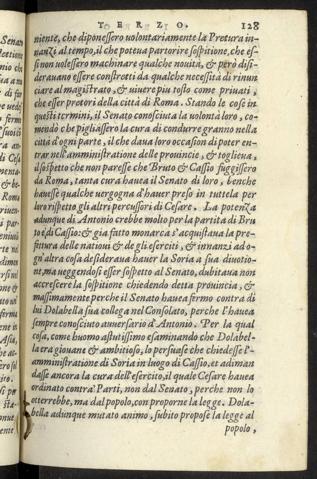 TERZO. 128
niente, che diponessero volontariamente la Pretura in-
nanzi al tempo, il che poteua partorire sospitione, che es-
si non volessero machinare qualche nouità, & però disi-
derauano essere constretti da qualche necessità di rinun
ciare al magistrato, & uiuere piu tosto come priuati,
che esser pretori della città di Roma. Stando le cose in
questi termini, il Senato conosciuta la volontà loro, co-
mendò che pigliassero la cura di condurre granno nella
città d'ogni parte, il che daua loro occasion di poter en-
trar nell'amministratione delle prouincie, & toglieua,
il sospetto che non paresse che Bruto & Cassio fuggissero
da Roma, tanta cura haueua il Senato di loro, benche
hauesse qualche uergogna d'hauer preso in tuttela per
loro rispetto gli altri percussori di Cesare. La potenza
adunque di Antonio crebbe molto per la partita di Bru
to & di Cassio: & gia fatto monarca s'acquistaua la pre-
fettura delle nationi & de gli eserciti, & innanzi ad o-
gn'altra cosa desideraua hauer la Soria a sua diuotio-
ne, ma ueggendosi esser sospetto al Senato, dubitaua non
accrescere la sospitione chiedendo detta prouincia, &
massimamente perche il Senato haueua fermo contra di
lui Dolabella sua collega nel Consolato, perche l'haueua
sempre conosciuto auuersario d'Antonio. Per la qual
cosa, come huomo astutissimo esaminando che Dolabel-
la era giouane & ambitioso, lo persuase che chiedesse l'-
amministratione di Soria in luogo di Cassio, et adiman
dasse ancora la cura dell'esercito, il quale Cesare haueua
ordinato contra' Parti, non dal Senato, perche non lo
otterrebbe, ma dal popolo, con proporne la legge. Dola-
bella adunque mutato animo, subito propose la legge al
popolo,